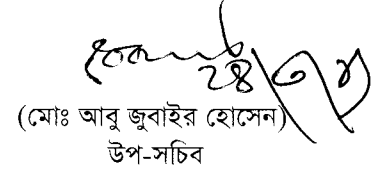 (মোঃ আবু জুবাইর হোসেন)
উপ-সচিব